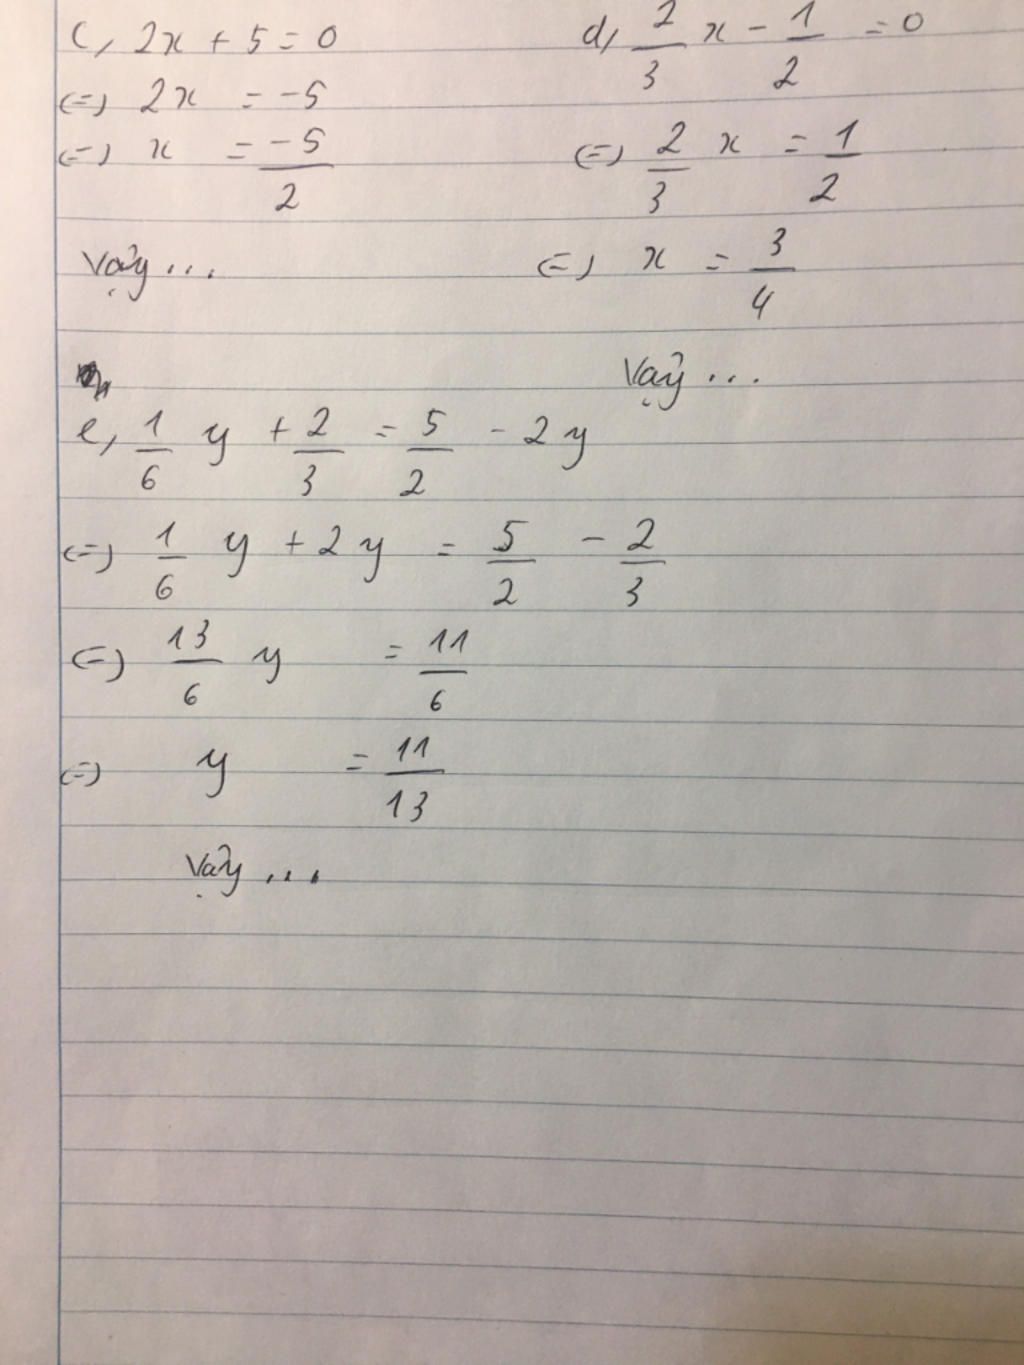 c, 2x + 5 = 0
(=) 2x = -5
(=) x = -5/2
Vậy...
d, 2/3 x - 1/2 = 0
(=) 2/3 x = 1/2
(=) x = 3/4
Vậy...
e, 1/6 y + 2/3 = 5/2 - 2y
(=) 1/6 y + 2y = 5/2 - 2/3
(=) 13/6 y = 11/6
(=) y = 11/13
Vậy...